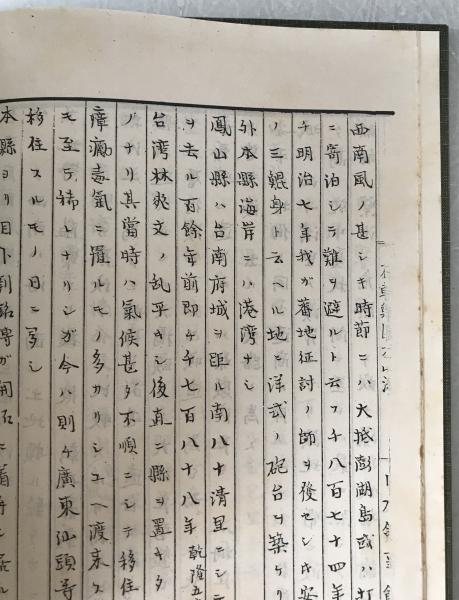 西南風ノ甚シキ時節ニハ大抵澎湖島或ハ打
ニ寄泊シテ難ヲ避ルト云フ千八百七十四年
チ明治七年我が蕃地征討ノ師ヲ後セシキ安
ノ三鯤身ト云ヘル地ニ洋式ノ砲台ヲ築ケリ
外本縣海岸ニハ港湾ナシ
鳳山縣ハ台南府城ヲ距ル南八十清里ニシテ
ヲ去ル百餘年前即チ千七百八十八年乾隆五
台湾林爽文ノ乱平キシ後直ニ縣ヲ置キタ
ノナリ其當時ハ氣候甚ダ不順ニシテ移住
瘴癘毒氣ニ罹ルモノ多カリシユヘ渡来ス
モ至テ稀レナリシガ今ハ則チ廣東汕頭等
移住スルモノ日ニ多シ
本縣ヨリ目下劉銘傳が開拓ニ着手シ居ル